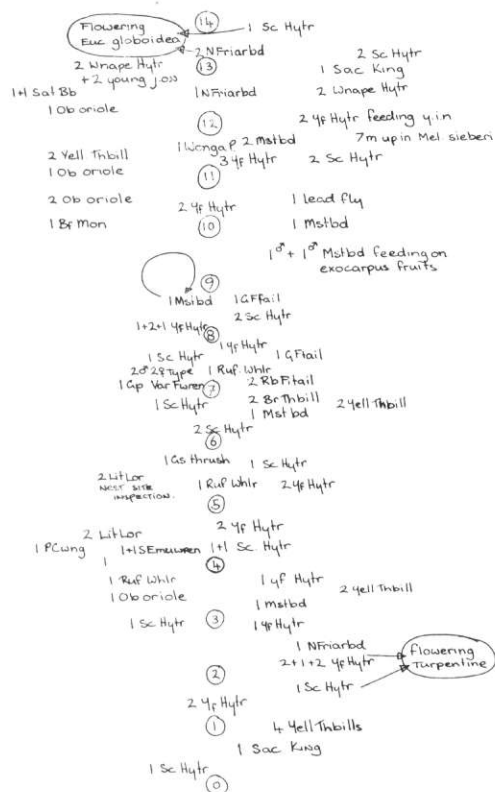 Flowering
Euc globoidea
14
1 Sc Hytr
2 NFriarbd
2 Wnape Hytr
+ 2 young joss
13
2 Sc Hytr
1 Sac King
1+1 Sat Bb
1 NFriarbd
2 Wnape Hytr
1 Ob oriole
12
2 Yf Hytr feeding y.i.n
7m up in Mel. sieberi
1 Wonga P 2 Mstbd
2 Yell Thbill
3 Yf Hytr
2 Sc Hytr
1 Ob oriole
11
2 Ob oriole
2 Yf Hytr
1 lead fly
1 Br Mon
10
1 Mstbd
1♂ + 1♂ Mstbd feeding on
exocarpus fruits
9
1 Mstbd
1 GFtail
1+2+1 Yf Hytr
2 Sc Hytr
8
1 Yf Hytr
1 Sc Hytr
1 GFtail
2♂ 2♀ Type
1 Ruf. Whlr
1 Gp Var Fwren
7
2 RbFitail
1 Sc Hytr
2 Br Thbill
2 Yell Thbill
1 Mstbd
2 Sc Hytr
6
1 Gs thrush
1 Sc Hytr
2 Lit Lor
NEST SITE
INSPECTION.
1 Ruf Whlr
2 Yf Hytr
5
2 Lit Lor
2 Yf Hytr
1 PCwng
1+1 SEmuwren
1+1 Sc Hytr
1
4
1 Ruf Whlr
1 yf Hytr
2 Yell Thbill
1 Ob oriole
1 Mstbd
1 Sc Hytr
3
1 Yf Hytr
1 NFriarbd
2+1+2 Yf Hytr
flowering
Turpentine
1 Sc Hytr
2
2 Yf Hytr
1
4 Yell Thbills
1 Sac King
1 Sc Hytr
0